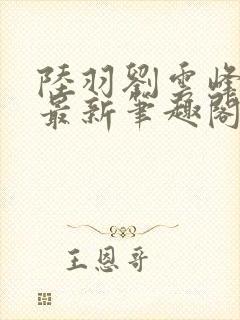 陸羽劉雲峰
最新筆趣閣
王恩哥